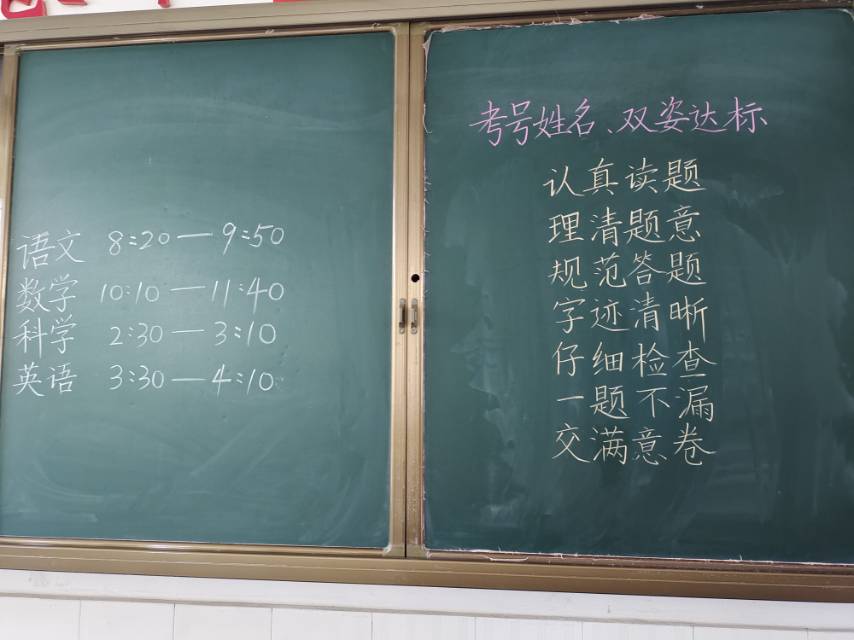 语文 8:20—9:50
数学 10:10—11:40
科学 2:30—3:10
英语 3:30—4:10
考号姓名、双姿达标
认真读题
理清题意
规范答题
字迹清晰
仔细检查
一题不漏
交满意卷